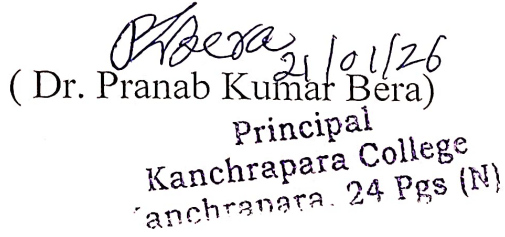 PKBera
21/01/26
( Dr. Pranab Kumar Bera)
Principal
Kanchrapara College
Kanchrapara. 24 Pgs (N)